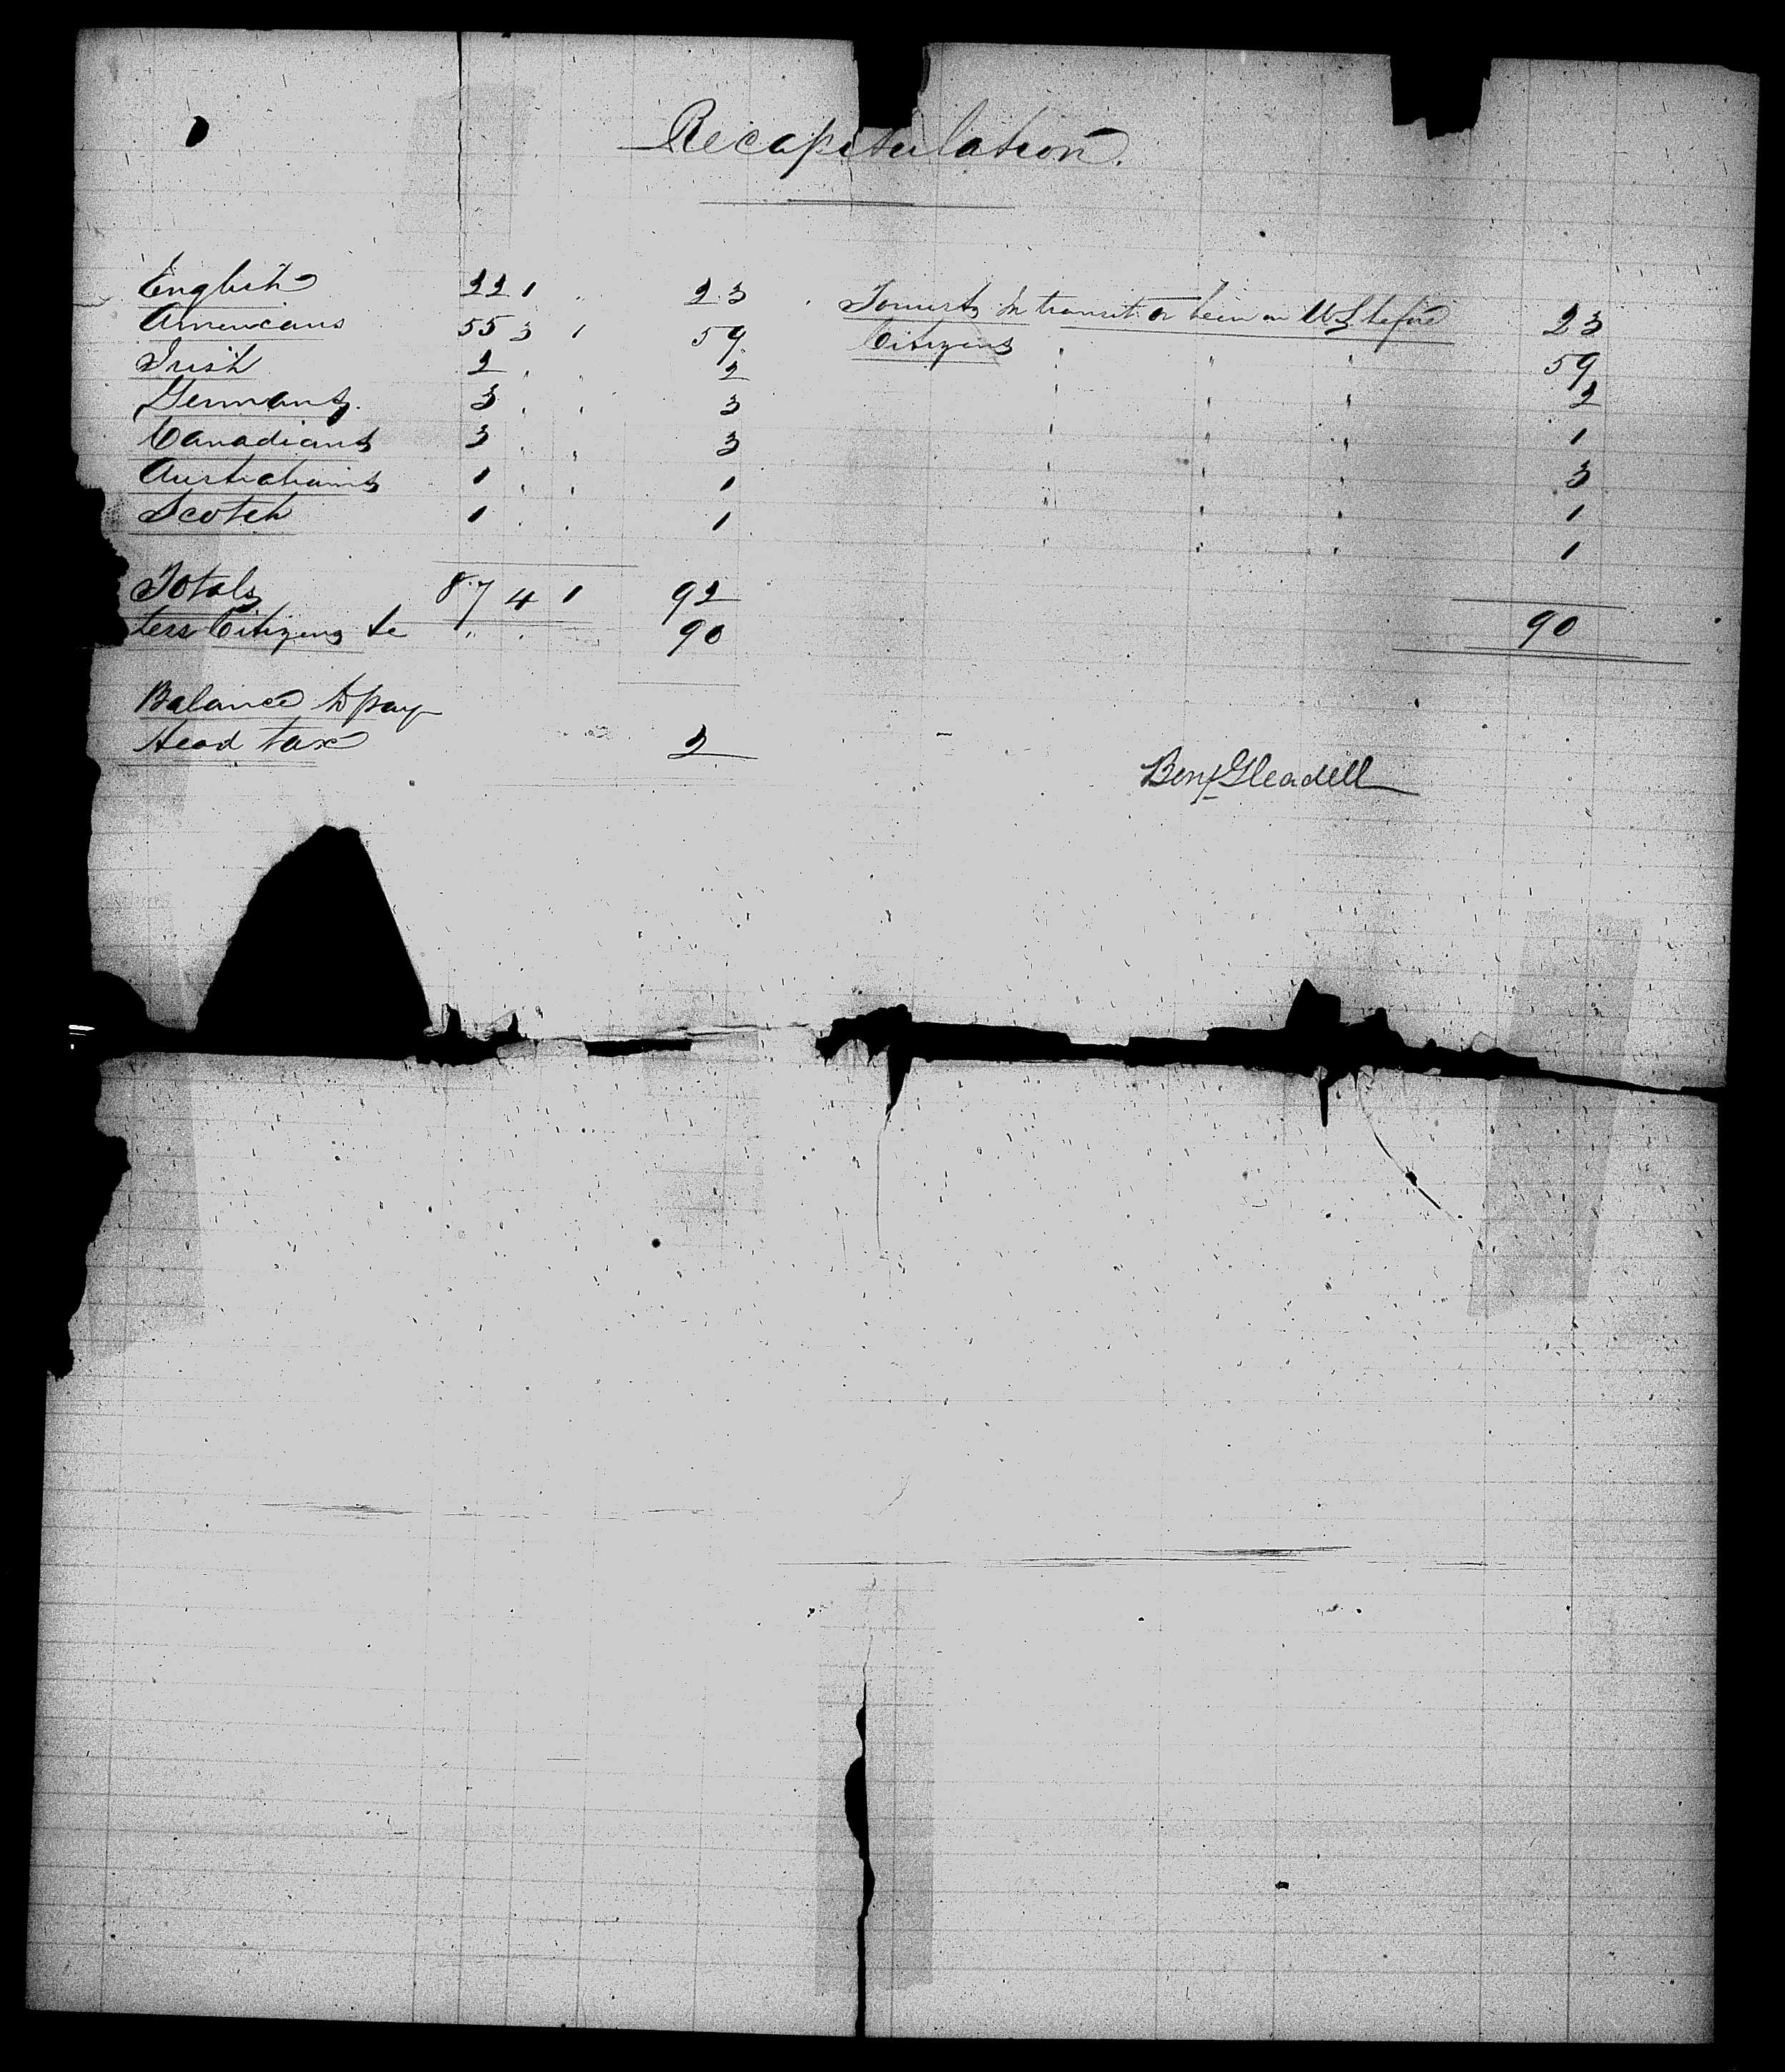 Recapitulation.
English 22 1 " 23 Tourists In transit or been in U S before 23
Americans 55 3 1 59 Citizens " " " 59
Irish 2 " " 2 " " " 2
Germans. 3 " " 3 " " " 1
Canadians 3 " " 3 " " " 3
Australians 1 " " 1 " " " 1
Scotch 1 " " 1 " " " 1
Totals 87 4 1 92
Less Citizens &c " " 90 90
Balance to pay
Head tax 2
Benj Gleadell